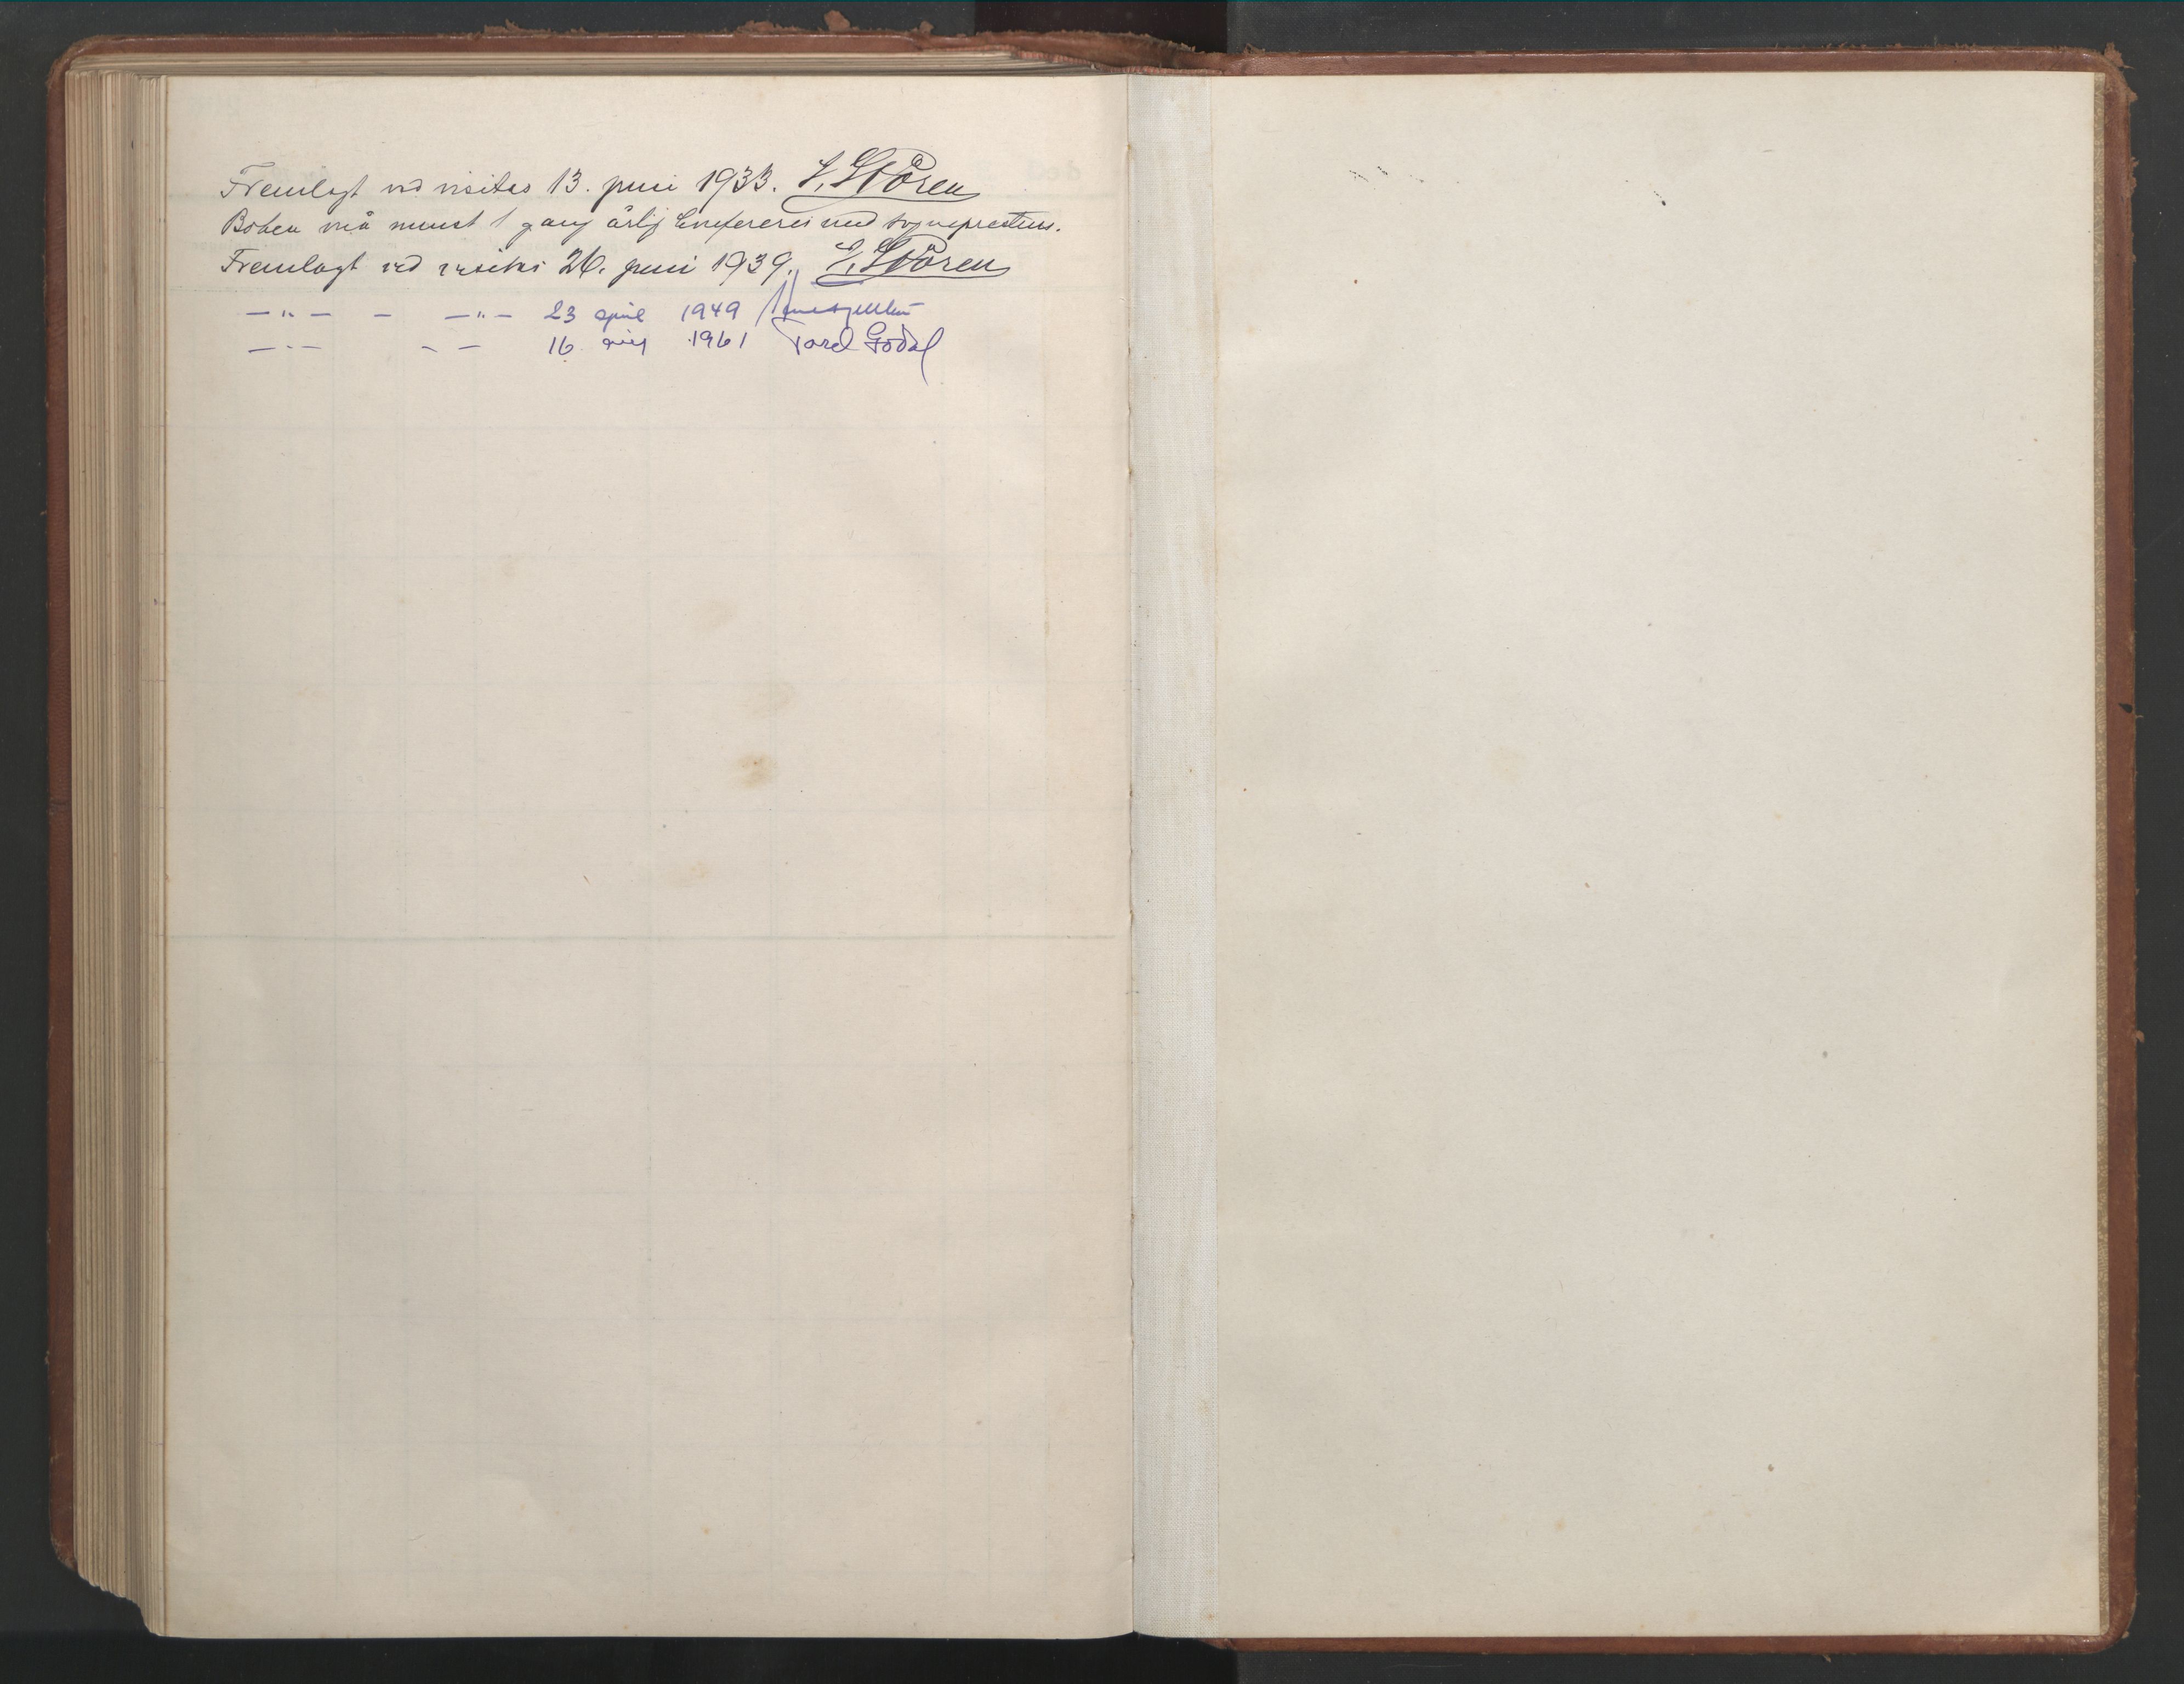 Fremlagt ved visitas 13. juni 1933. J. Støren
Boken må minst 1 gang årlig konfereres med sognepresten.
Fremlagt ved visitas 26. juni 1939. J. Støren
— " — - — " — 23 april 1949
— " — - — 16 1961 Tord Godal